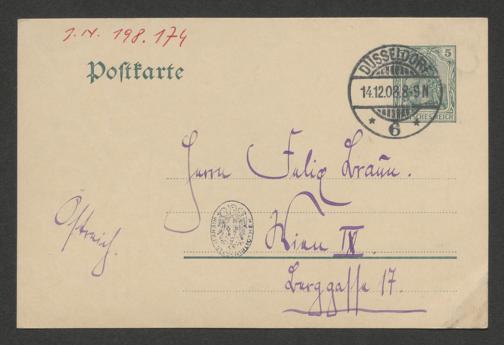 J. N. 198.174
Postkarte
5
DÜSSELDORF
14.12.08.8-9N
* 6 *
DEUTSCHES REICH
Herrn Felix Braun.
Östreich.
Wien IX.
Berggasse 17.